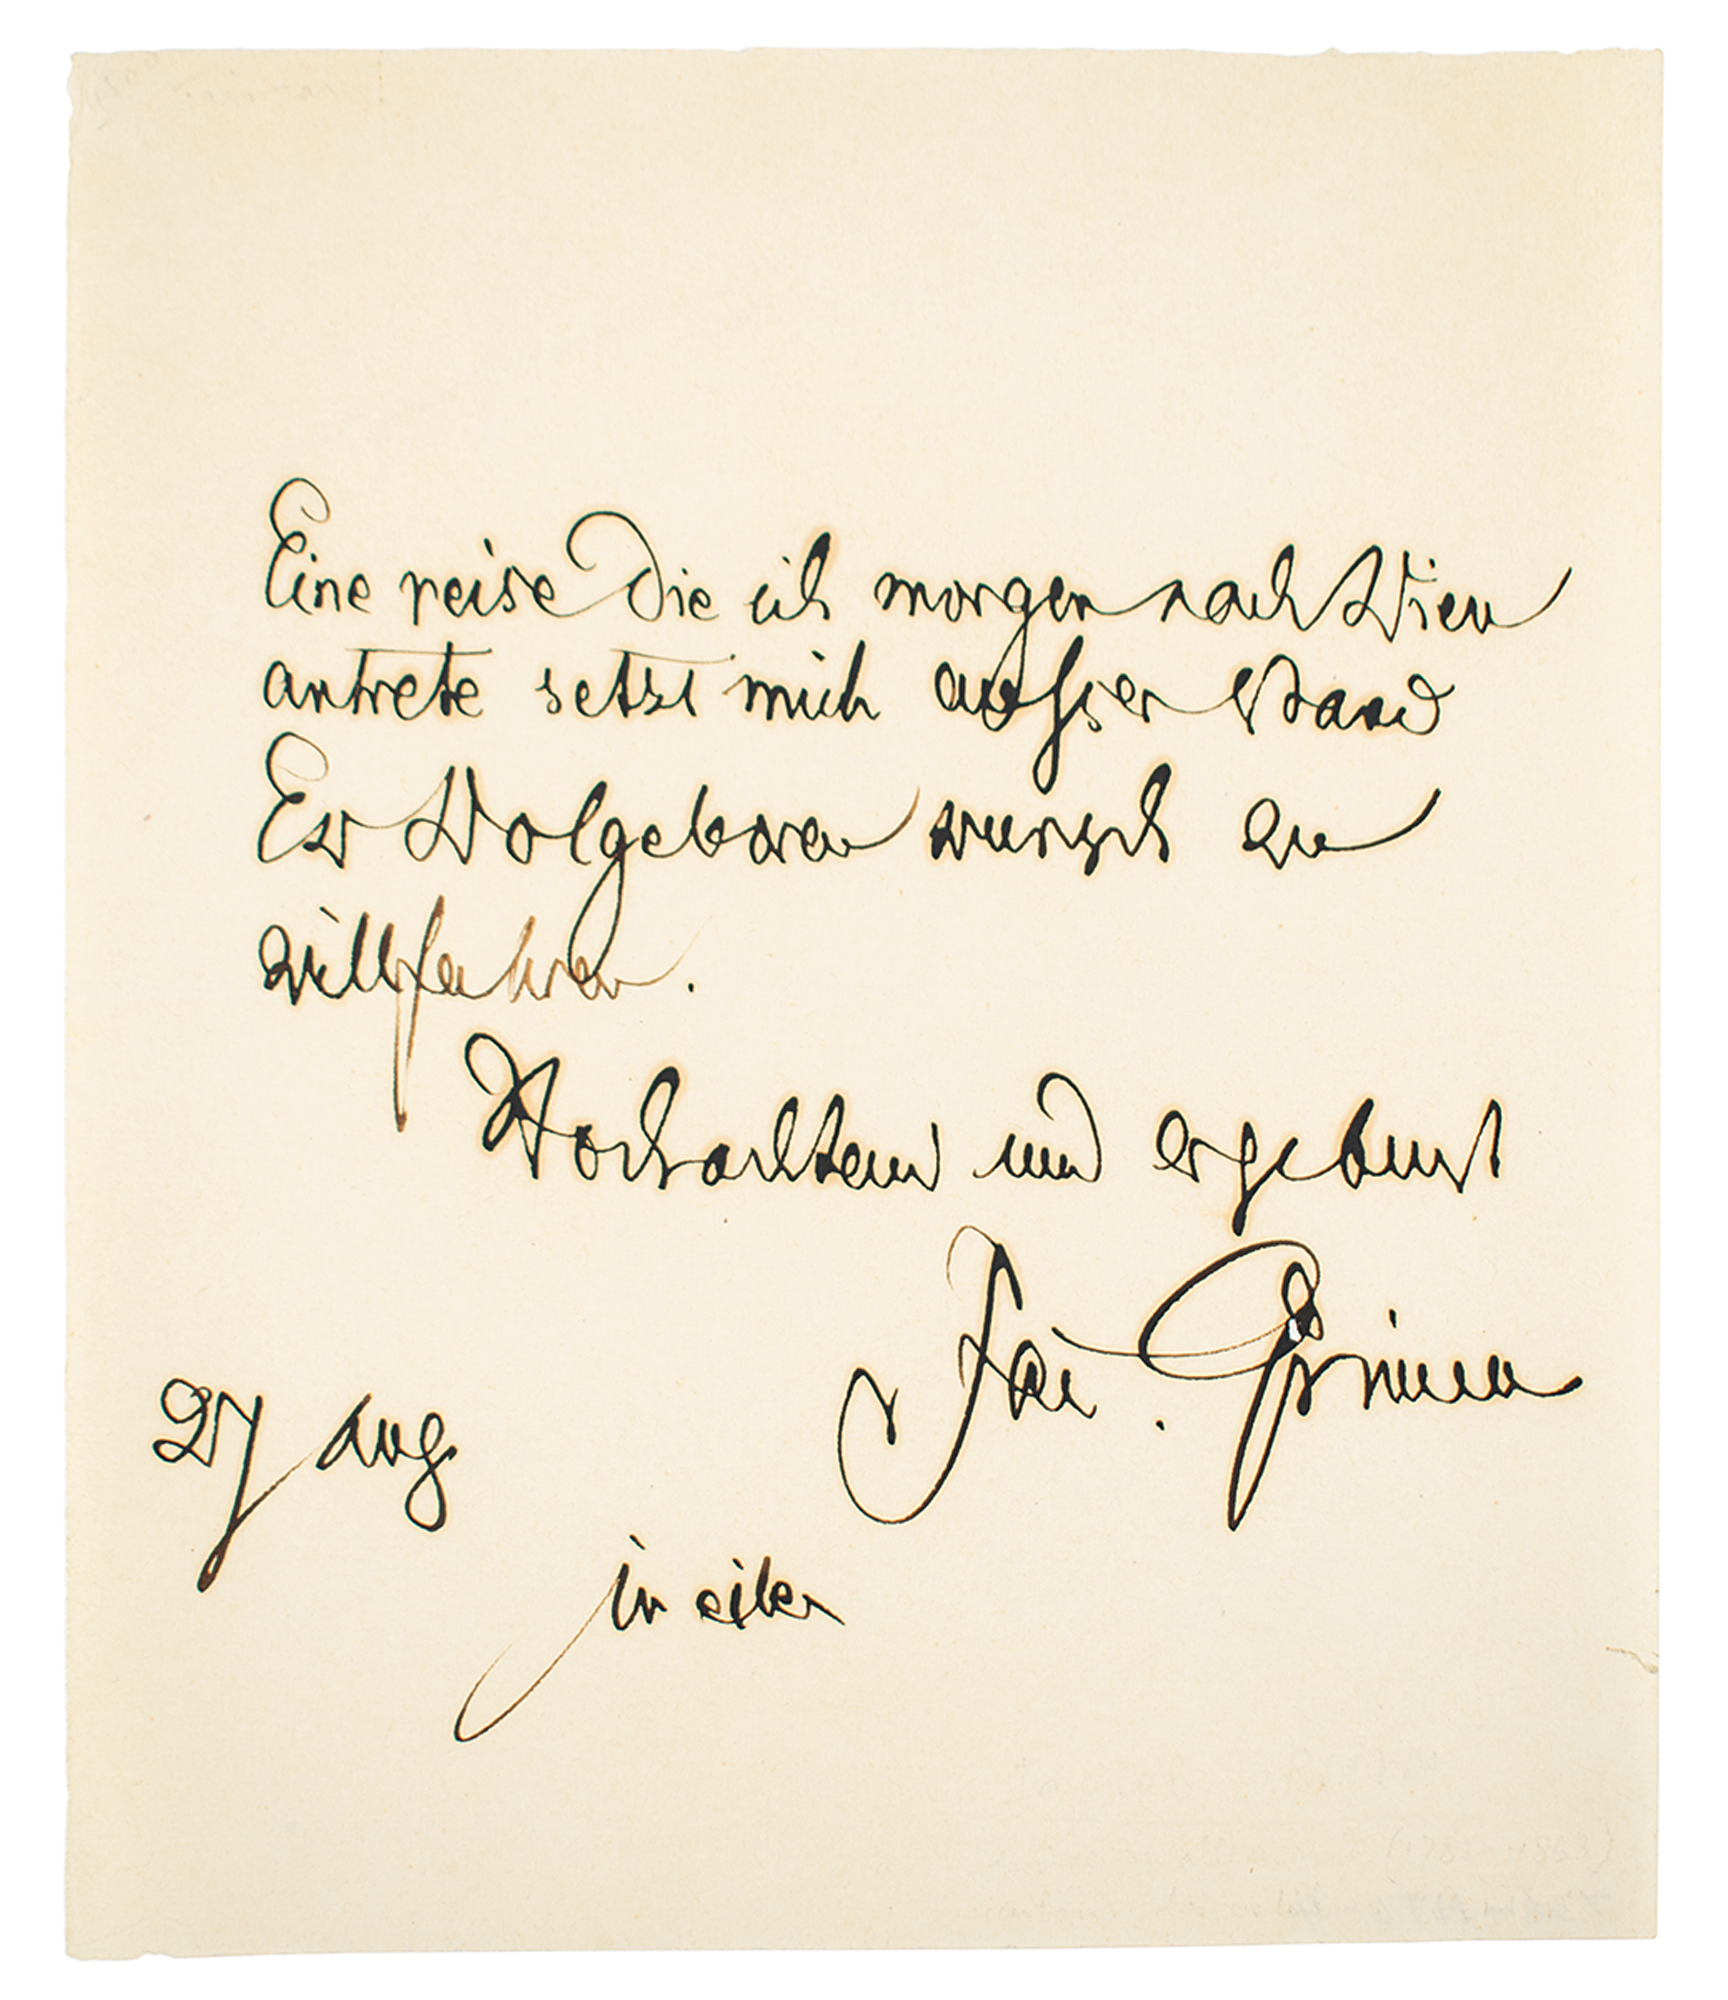 Eine reise die ich morgen nach Wien
antrete setzt mich aufser stand
Ew Wolgeboren wunsch zu
willfahren.
Hochachtend und ergebenst
Jac. Grimm
27 aug
in eile